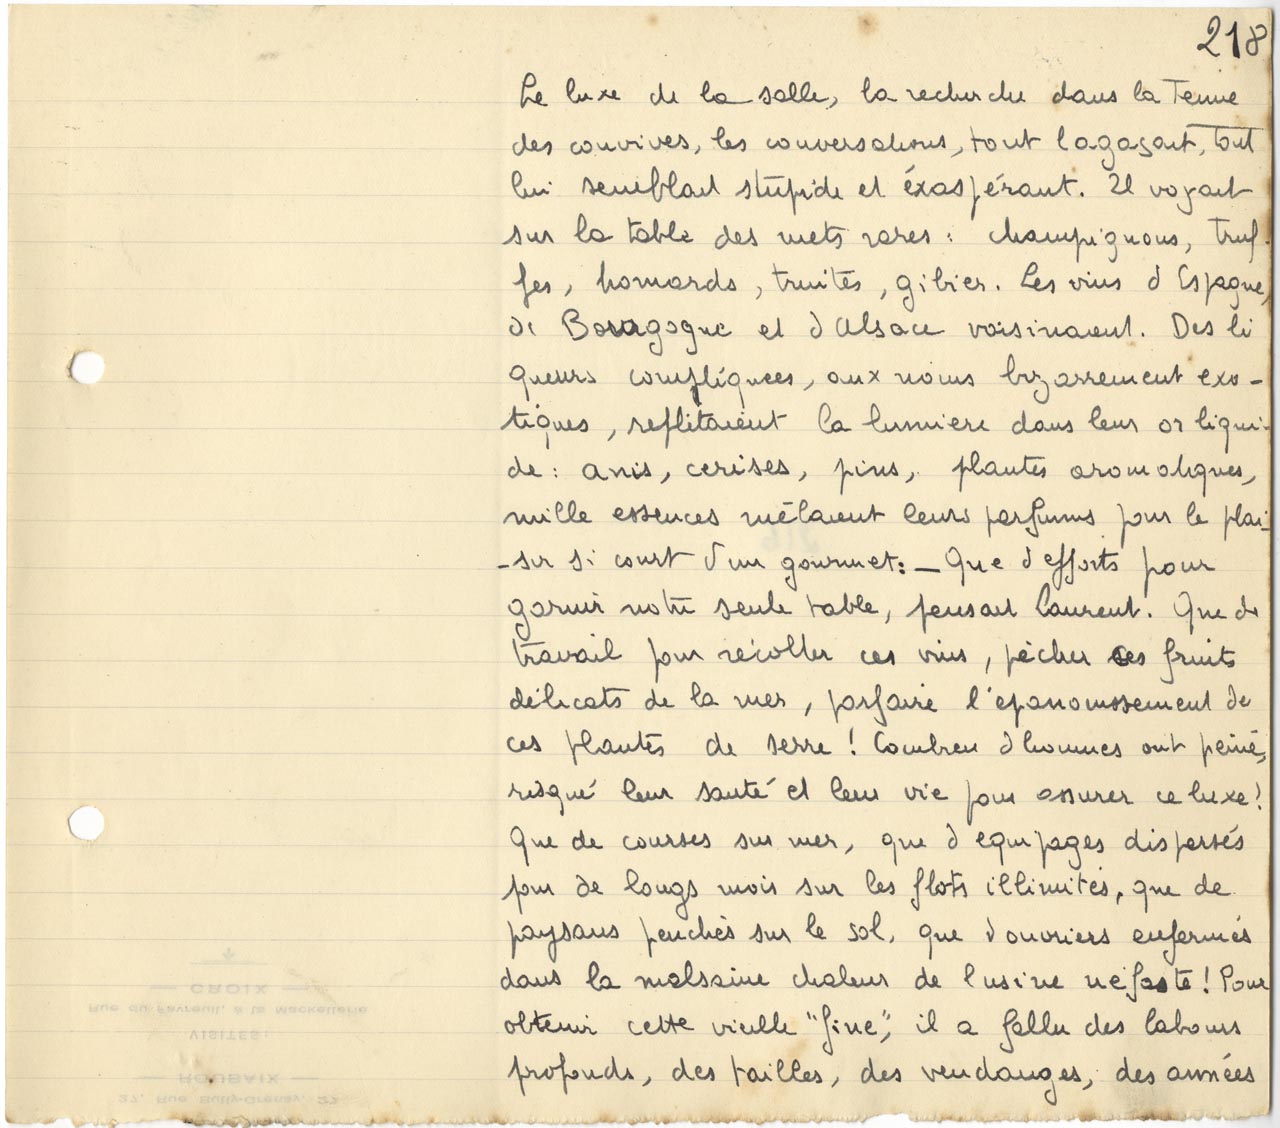 218
Le luxe de la salle, la recherche dans la Tenue
des convives, les conversations, tout l'agaçait, Tout
lui semblait stupide et éxaspérant. Il voyait
sur la table des mets rares : champignons, Truf-
fes, homards, truites, gibier. Les vins d'Espagne,
de Bourgogne et d'Alsace voisinaient. Des li
queurs compliquées, aux noms bizarrement exo-
tiques, reflétaient la lumière dans leur or liqui-
de : anis, cerises, pins, plantes aromatiques,
mille essences mêlaient leurs parfums pour le plai-
-sir si court d'un gourmet : — Que d'efforts pour
garnir notre seule table, pensait Laurent. Que de
travail pour récolter ces vins, pêcher ces fruits
délicats de la mer, parfaire l'épanouissement de
ces plantes de serre ! Combien d'hommes ont peiné,
risqué leur santé et leur vie pour assurer ce luxe !
Que de courses sur mer, que d'équipages dispersés
pour de longs mois sur les flots illimités, que de
paysans penchés sur le sol, que d'ouvriers enfermés
dans la malsaine chaleur de l'usine néfaste ! Pour
obtenir cette vieille "fine", il a fallu des labours
profonds, des tailles, des vendanges, des années
CROIX
Rue du Favreuil, à la Mackellerie
VISITES :
ROUBAIX
27, Rue Bully-Grenay, 27